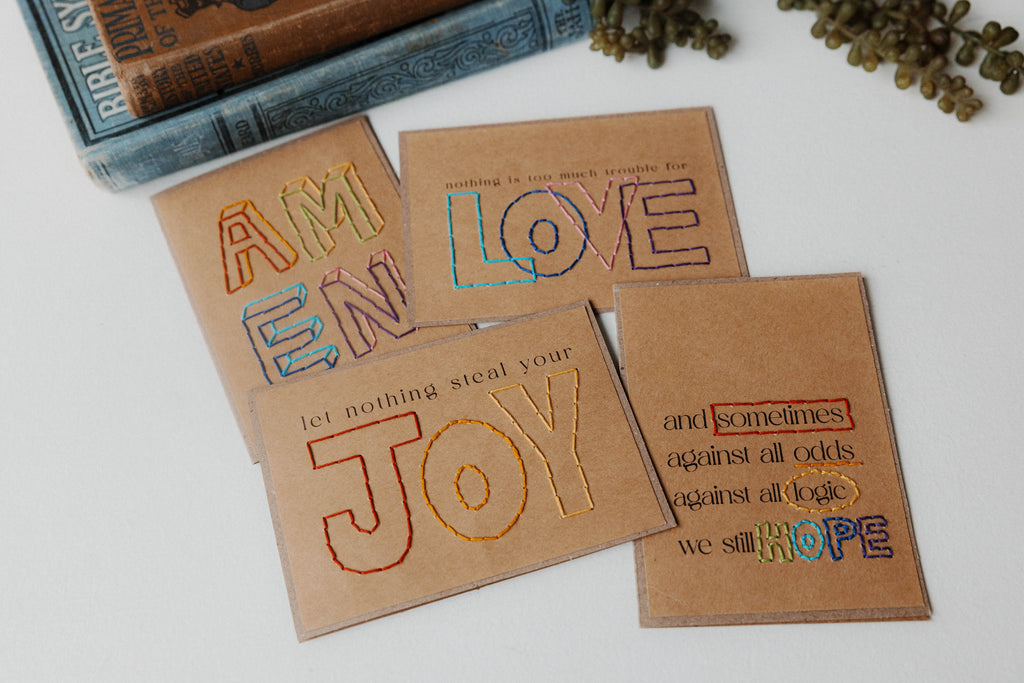 BIBLE SY
PRIMA
OF THE
AM
EN
nothing is too much trouble for
LOVE
let nothing steal your
JOY
and sometimes
against all odds
against all logic
we still HOPE